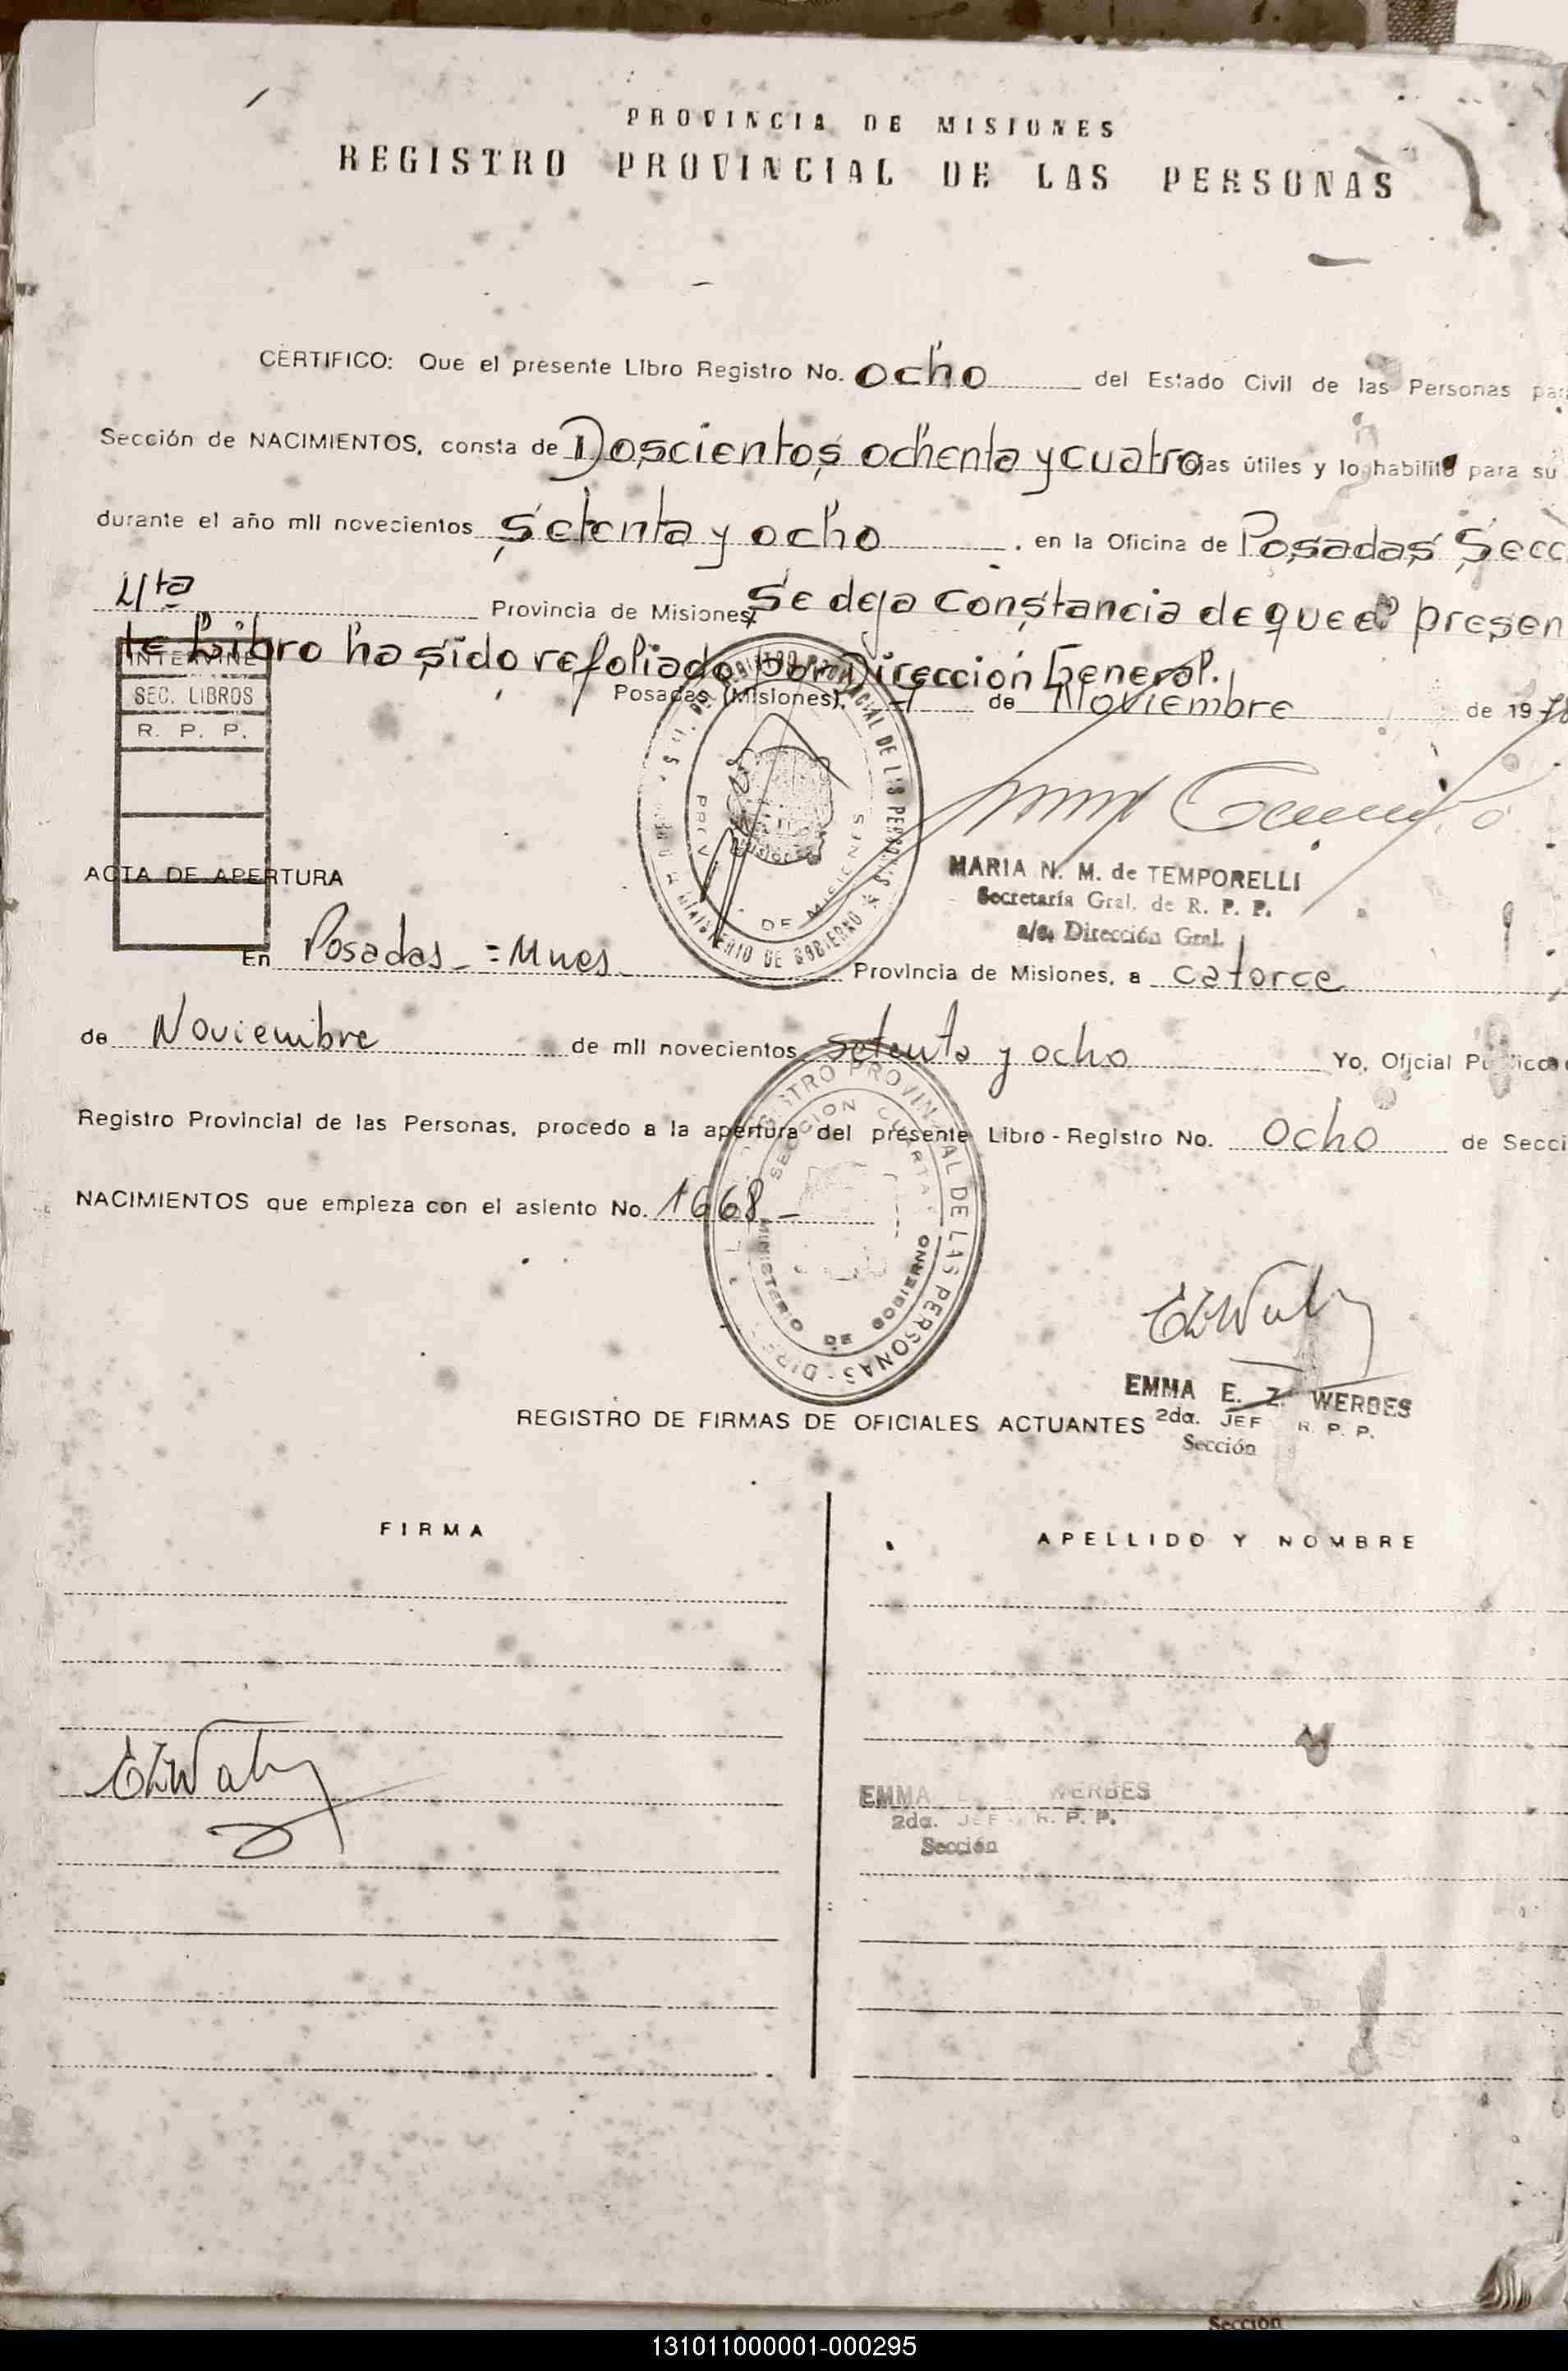 PROVINCIA DE MISIONES
REGISTRO PROVINCIAL DE LAS PERSONAS
CERTIFICO: Que el presente Libro Registro No. ocho del Estado Civil de las Personas par
Sección de NACIMIENTOS, consta de Doscientos ochenta y cuatro jas útiles y lo habilito para su
durante el año mil novecientos setenta y ocho, en la Oficina de Posadas Secc
4ta Provincia de Misiones, Se deja constancia de que el presen
te Libro ha sido refoliado por Dirección General.
INTERVINE
SEC. LIBROS
R. P. P.
Posadas (Misiones), de Noviembre de 1978
MINISTERIO DE GOBIERNO
MARIA N. M. de TEMPORELLI
Secretaría Gral. de R. P. P.
a/c. Dirección Gral.
ACTA DE APERTURA
En Posadas - = Mnes Provincia de Misiones, a catorce
de Noviembre de mil novecientos setenta y ocho Yo, Oficial Público
Registro Provincial de las Personas, procedo a la apertura del presente Libro - Registro No. ocho de Secci
NACIMIENTOS que empieza con el asiento No. 1668 -
REGISTRO PROVINCIAL DE LAS PERSONAS
SECCION CUARTA
MINISTERIO DE GOBIERNO
EMMA E. Z. WERBES
2da. JEF R. P. P.
Sección
REGISTRO DE FIRMAS DE OFICIALES ACTUANTES
FIRMA
APELLIDO Y NOMBRE
EMMA E. Z. WERBES
2da. JEF R. P. P.
Sección
Sección
131011000001-000295